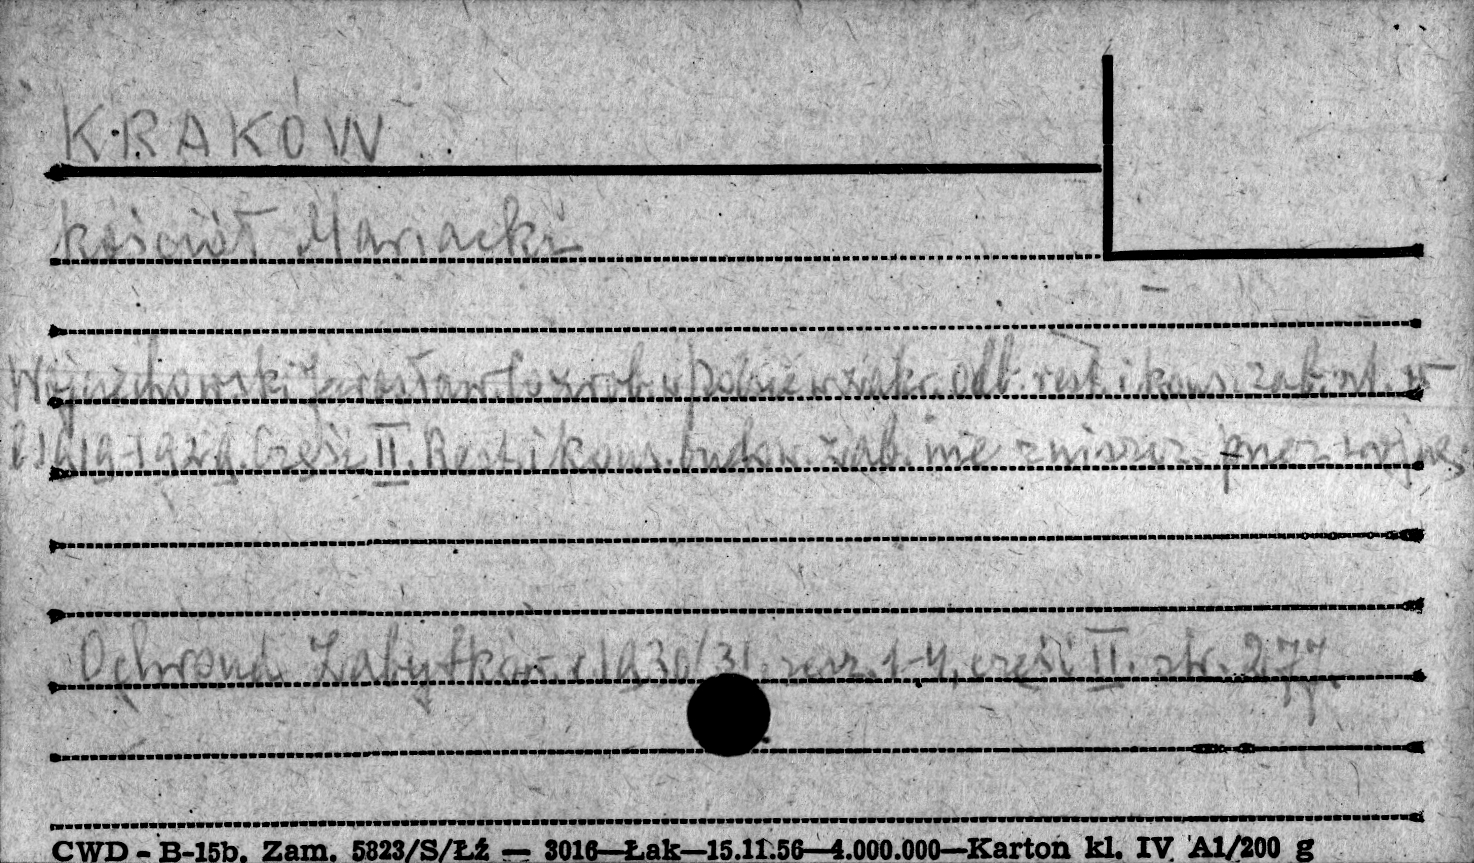 KRAKÓW
kościół Mariacki
Wojciechowski Jarosław. Co zrob. w Polsce w zakr. odb. rest. i kons. zab. od
r. 1919-1929. Część II. Rest. i kons. budow. zab. nie zniszcz. przez wojnę
Ochrona Zabytków. r. 1930/31. zesz. 1-4, część II. str. 277.
CWD - B-15b. Zam. 5823/S/Łź — 3016—Łak—15.11.56—4.000.000—Karton kl. IV A1/200 g